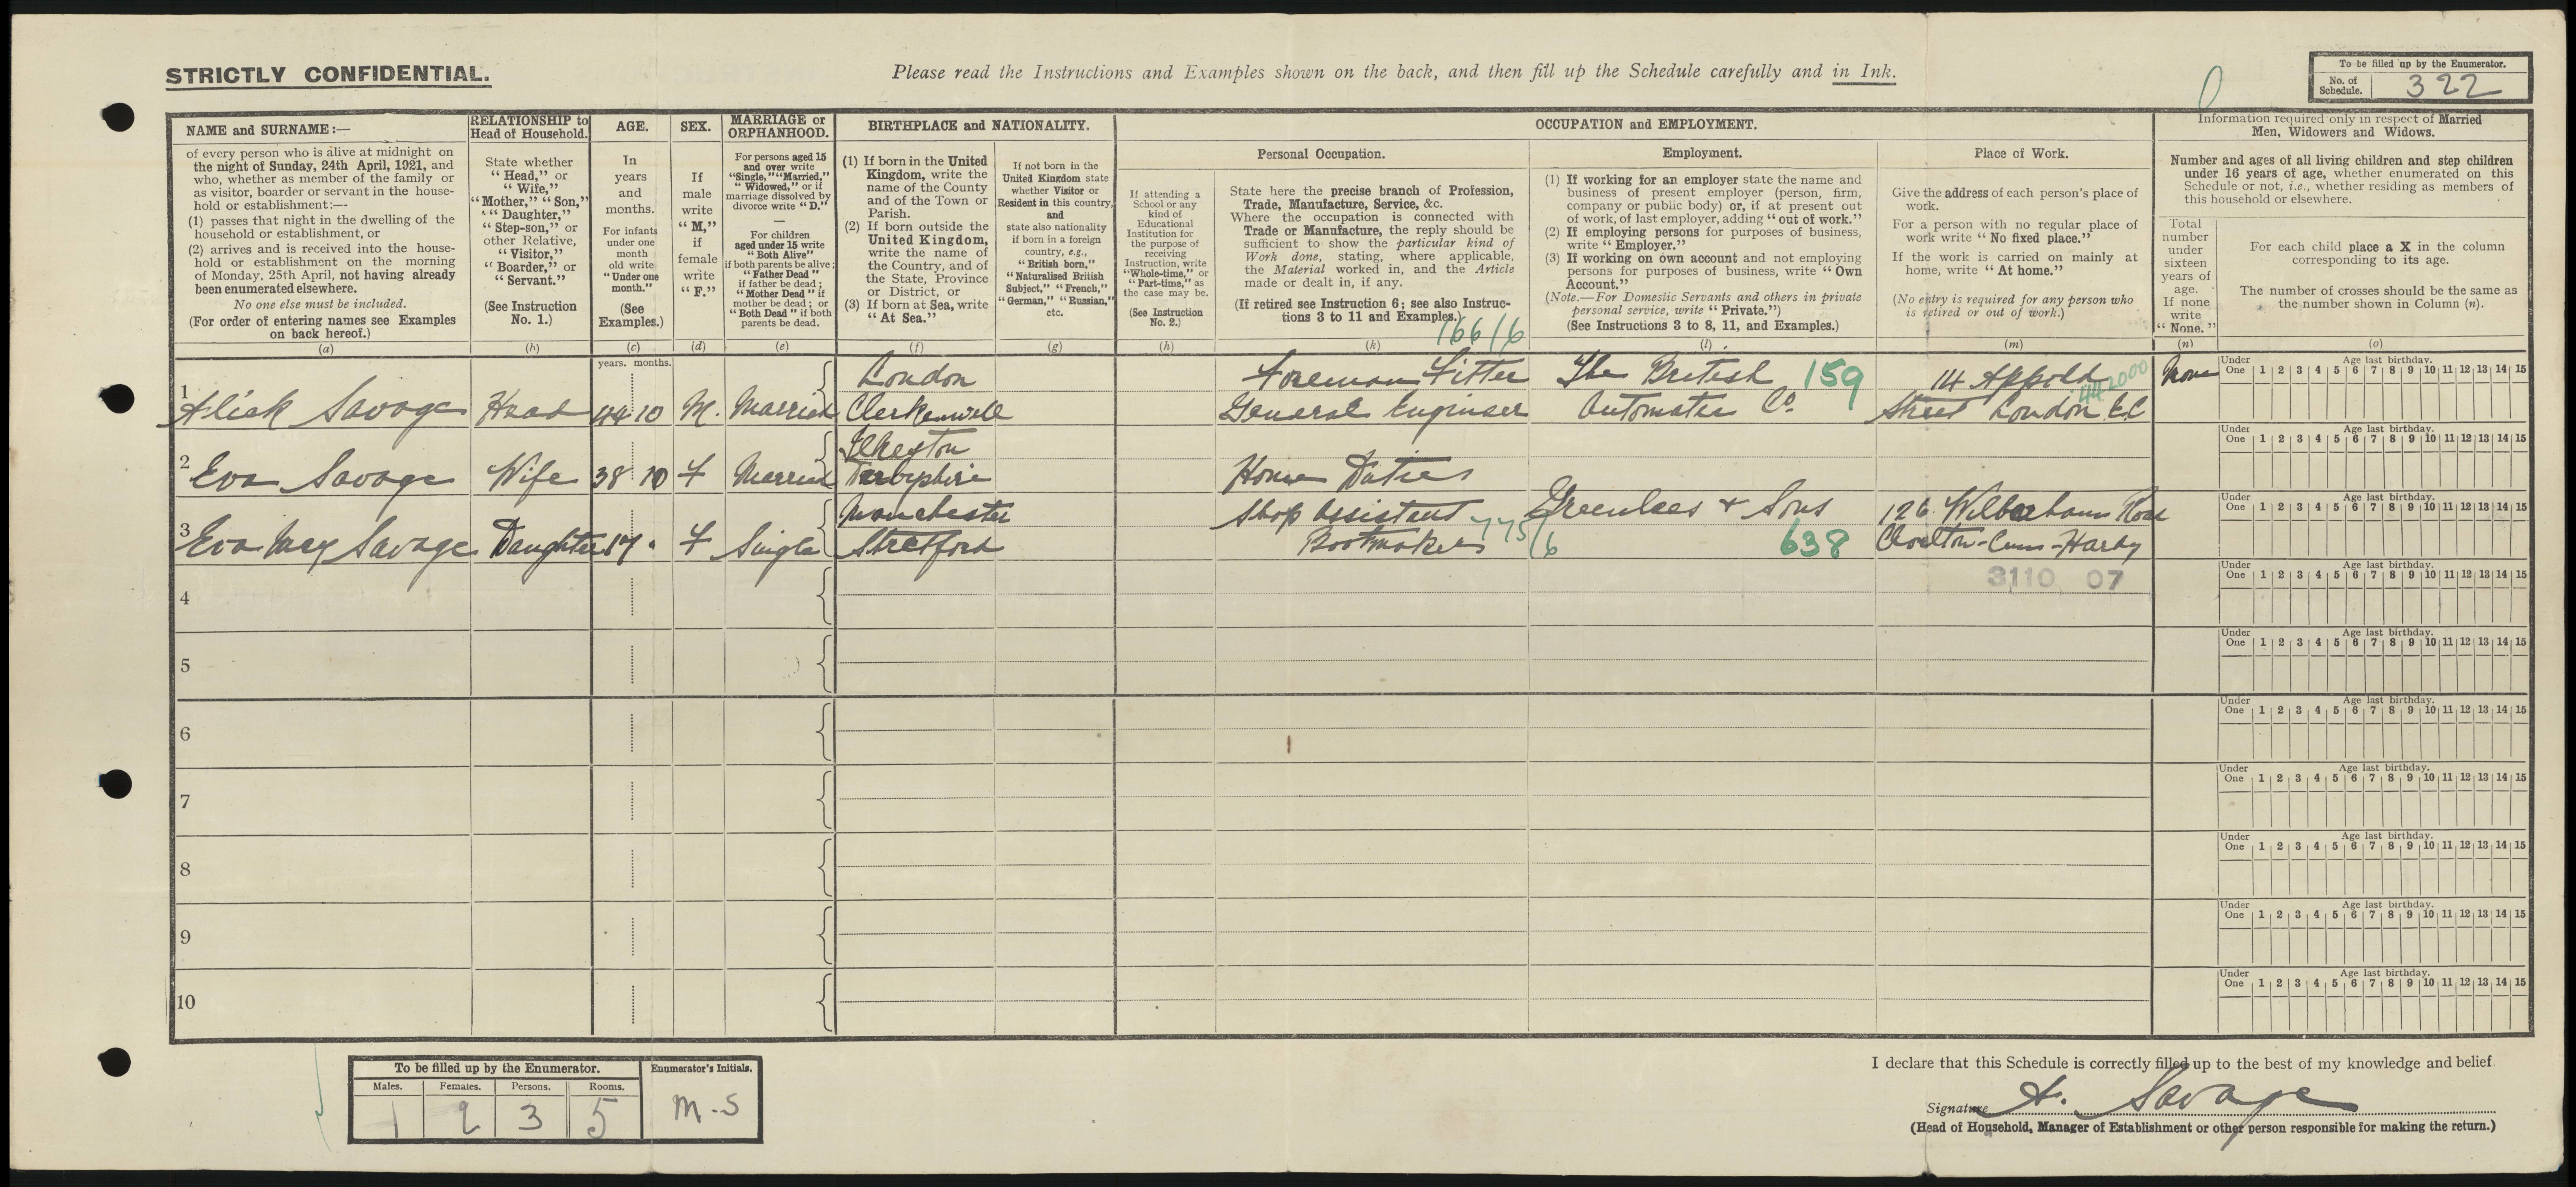 STRICTLY CONFIDENTIAL.
Please read the Instructions and Examples shown on the back, and then fill up the Schedule carefully and in Ink.
To be filled up by the Enumerator.
No. of Schedule. 322
NAME and SURNAME:—
of every person who is alive at midnight on
the night of Sunday, 24th April, 1921, and
who, whether as member of the family or
as visitor, boarder or servant in the house-
hold or establishment:—
(1) passes that night in the dwelling of the
household or establishment, or
(2) arrives and is received into the house-
hold or establishment on the morning
of Monday, 25th April, not having already
been enumerated elsewhere.
No one else must be included.
(For order of entering names see Examples
on back hereof.)
(a)
RELATIONSHIP to
Head of Household.
State whether
"Head," or
"Wife,"
"Mother," "Son,"
"Daughter,"
"Step-son," or
other Relative,
"Visitor,"
"Boarder," or
"Servant."
(See Instruction
No. 1.)
(b)
AGE.
In
years
and
months.
For infants
under one
month
old write
"Under one
month."
(See
Examples.)
(c)
SEX.
If
male
write
"M,"
if
female
write
"F."
(d)
MARRIAGE or
ORPHANHOOD.
For persons aged 15
and over write
"Single," "Married,"
"Widowed," or if
marriage dissolved by
divorce write "D."
—
For children
aged under 15 write
"Both Alive"
if both parents be alive;
"Father Dead"
if father be dead;
"Mother Dead" if
mother be dead; or
"Both Dead" if both
parents be dead.
(e)
BIRTHPLACE and NATIONALITY.
(1) If born in the United
Kingdom, write the
name of the County
and of the Town or
Parish.
(2) If born outside the
United Kingdom,
write the name of
the Country, and of
the State, Province
or District, or
(3) If born at Sea, write
"At Sea."
(f)
If not born in the
United Kingdom state
whether Visitor or
Resident in this country,
and
state also nationality
if born in a foreign
country, e.g.,
"British born,"
"Naturalised British
Subject," "French,"
"German," "Russian,"
etc.
(g)
OCCUPATION and EMPLOYMENT.
If attending a
School or any
kind of
Educational
Institution for
the purpose of
receiving
Instruction, write
"Whole-time," or
"Part-time," as
the case may be.
(See Instruction
No. 2.)
(h)
Personal Occupation.
State here the precise branch of Profession,
Trade, Manufacture, Service, &c.
Where the occupation is connected with
Trade or Manufacture, the reply should be
sufficient to show the particular kind of
Work done, stating, where applicable,
the Material worked in, and the Article
made or dealt in, if any.
(If retired see Instruction 6; see also Instruc-
tions 3 to 11 and Examples.)
(k)
Employment.
(1) If working for an employer state the name and
business of present employer (person, firm,
company or public body) or, if at present out
of work, of last employer, adding "out of work."
(2) If employing persons for purposes of business,
write "Employer."
(3) If working on own account and not employing
persons for purposes of business, write "Own
Account."
(Note.—For Domestic Servants and others in private
personal service, write "Private.")
(See Instructions 3 to 8, 11, and Examples.)
(l)
Place of Work.
Give the address of each person's place of
work.
For a person with no regular place of
work write "No fixed place."
If the work is carried on mainly at
home, write "At home."
(No entry is required for any person who
is retired or out of work.)
(m)
Information required only in respect of Married
Men, Widowers and Widows.
Number and ages of all living children and step children
under 16 years of age, whether enumerated on this
Schedule or not, i.e., whether residing as members of
this household or elsewhere.
Total
number
under
sixteen
years of
age.
If none
write
"None."
(n)
For each child place a X in the column
corresponding to its age.
The number of crosses should be the same as
the number shown in Column (n).
(o)
years. months.
166/6
1 Alick Savage Head 44 10 M. Married London
Clerkenwell
Foreman Fitter
General Engineer
The British 159
Automatic Co.
14 Appold
Street London E.C
442000
None
Under One 1 2 3 4 5 6 7 8 9 10 11 12 13 14 15
Age last birthday.
2 Eva Savage Wife 38 10 F Married Ilkeston
Derbyshire
Home Duties
Under One 1 2 3 4 5 6 7 8 9 10 11 12 13 14 15
Age last birthday.
3 Eva May Savage Daughter 17 F Single Manchester
Stretford
Shop Assistant
Bootmakers
775/6
Greenlees & Sons
638
126 Wilberham Road
Chorlton-Cum-Hardy
3110 07
Under One 1 2 3 4 5 6 7 8 9 10 11 12 13 14 15
Age last birthday.
4
Under One 1 2 3 4 5 6 7 8 9 10 11 12 13 14 15
Age last birthday.
5
Under One 1 2 3 4 5 6 7 8 9 10 11 12 13 14 15
Age last birthday.
6
Under One 1 2 3 4 5 6 7 8 9 10 11 12 13 14 15
Age last birthday.
7
Under One 1 2 3 4 5 6 7 8 9 10 11 12 13 14 15
Age last birthday.
8
Under One 1 2 3 4 5 6 7 8 9 10 11 12 13 14 15
Age last birthday.
9
Under One 1 2 3 4 5 6 7 8 9 10 11 12 13 14 15
Age last birthday.
10
Under One 1 2 3 4 5 6 7 8 9 10 11 12 13 14 15
Age last birthday.
To be filled up by the Enumerator.
Males. Females. Persons. Rooms.
1 2 3 5
Enumerator's Initials.
M.S
I declare that this Schedule is correctly filled up to the best of my knowledge and belief.
Signature A. Savage
(Head of Household, Manager of Establishment or other person responsible for making the return.)